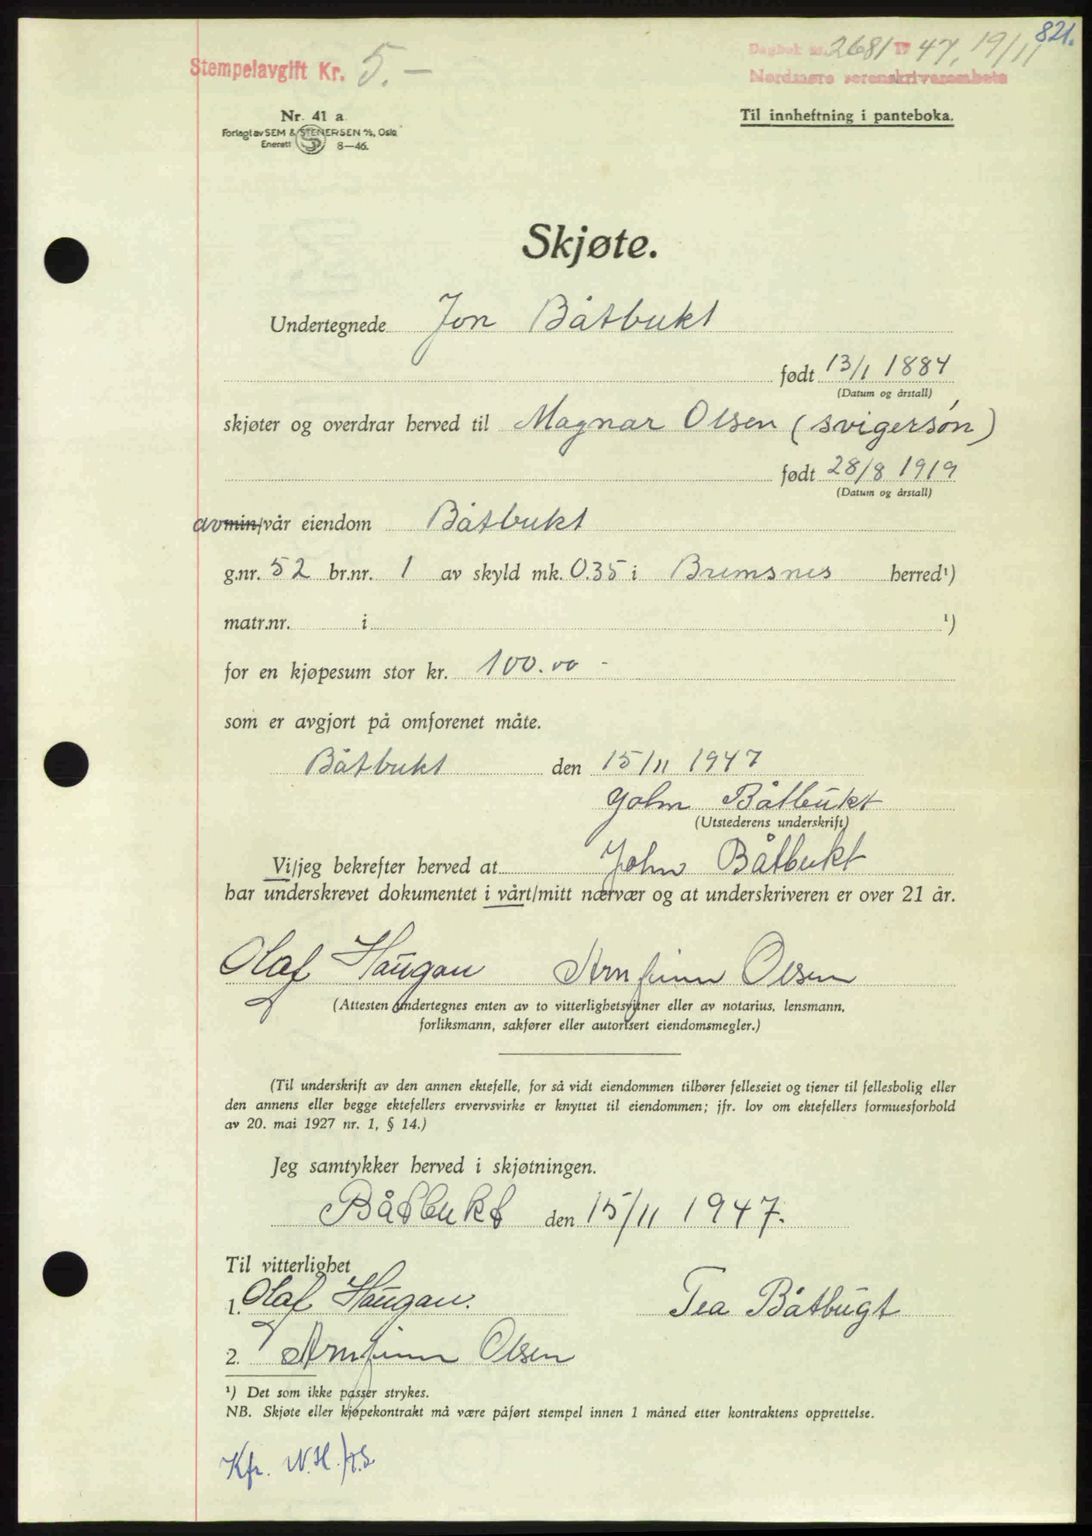 821.
Stempelavgift Kr. 5.—
Dagbok nr. 2681 19 47, 19/11
Nordmøre sorenskriverembete
Nr. 41 a.
Forlagt av SEM & STENERSEN A/S, Oslo
Enerett 8—46.
Til innheftning i panteboka.
Skjøte.
Undertegnede Jon Båtbukt
født 13/1 1884
(Datum og årstall)
skjøter og overdrar herved til Magnar Olsen (svigersøn)
født 28/8 1919
(Datum og årstall)
av min/vår eiendom Båtbukt
g.nr. 52 br.nr. 1 av skyld mk. 0.35 i Bremsnes herred¹)
matr.nr. i ¹)
for en kjøpesum stor kr. 100.00 -
som er avgjort på omforenet måte.
Båtbukt den 15/11 1947
John Båtbukt
(Utstederens underskrift)
Vi/jeg bekrefter herved at John Båtbukt
har underskrevet dokumentet i vårt/mitt nærvær og at underskriveren er over 21 år.
Olaf Haugan Arnfinn Olsen
(Attesten undertegnes enten av to vitterlighetsvitner eller av notarius, lensmann,
forliksmann, sakfører eller autorisert eiendomsmegler.)
(Til underskrift av den annen ektefelle, for så vidt eiendommen tilhører felleseiet og tjener til fellesbolig eller
den annens eller begge ektefellers ervervsvirke er knyttet til eiendommen; jfr. lov om ektefellers formuesforhold
av 20. mai 1927 nr. 1, § 14.)
Jeg samtykker herved i skjøtningen.
Båtbukt den 15/11 1947.
Til vitterlighet
1. Olaf Haugan. Tea Båtbugt
2. Arnfinn Olsen
¹) Det som ikke passer strykes.
NB. Skjøte eller kjøpekontrakt må være påført stempel innen 1 måned etter kontraktens opprettelse.
Kfr. N.H./